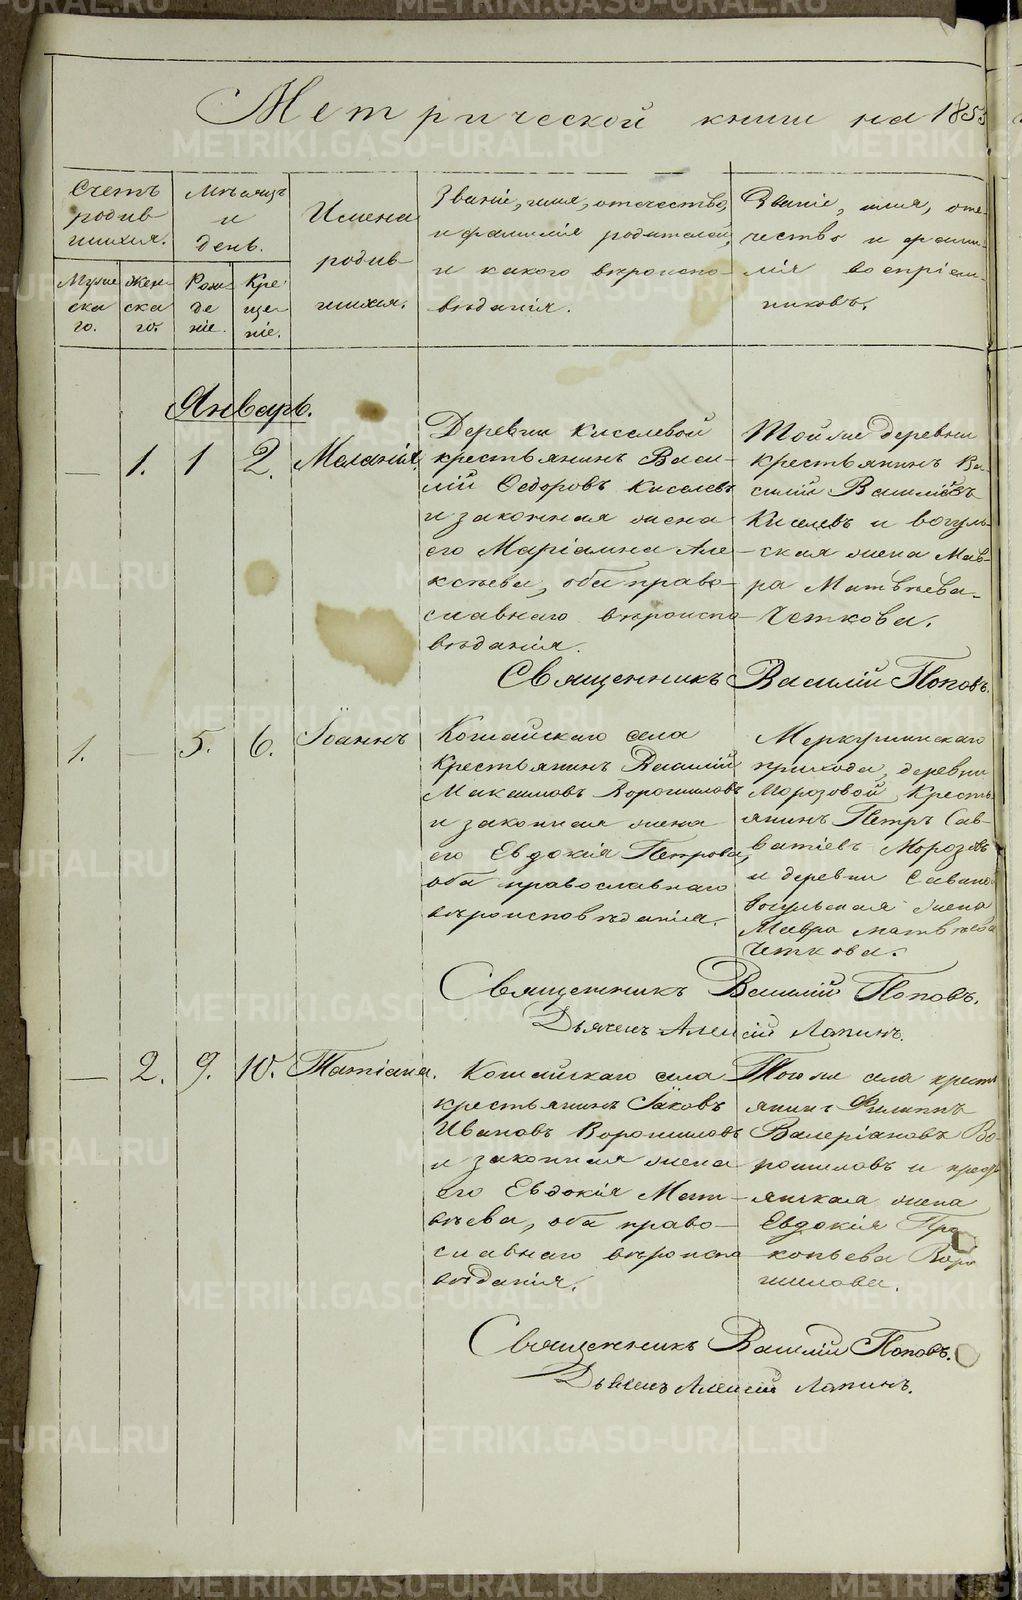 Метрической книги на 1853
Счетъ родив шихся.
Мѣсяцъ и день.
Имена родив- шихся.
Званіе, имя, отечество, и фамилія родителей, и какого вѣроиспо- вѣданія.
Званіе, имя, оте- чество и фами- лія воспріем- никовъ.
Муже ска го.
Жен- ска го.
Рож- де ніе.
Кре- ще- ніе.
Январь.
— 1. 1 2. Меланія.
Деревни Киселевой
крестьянинъ Васи-
лій Ѳедоровъ Киселевъ
и законная жена
его Маріамна Але-
ксѣева, оба право-
славнаго вѣроиспо
вѣданія.
Той же деревни
крестьянинъ Ва-
силій Васильевъ
Киселевъ и вогуль-
ская жена Мав-
ра Матвѣева
Четкова.
Священникъ Василій Поповъ.
1. — 5. 6. Іоаннъ
Кошайскаго села
крестьянинъ Василій
Максимовъ Ворошиловъ
и законная жена
его Евдокія Петрова,
оба православнаго
вѣроисповѣданія.
Меркушинскаго
прихода, деревни
Морозовой, кресть
янинъ Петръ Сав-
ватіевъ Морозовъ
и деревни
вогульская жена
Мавра Матвѣева
Четкова.
Священникъ Василій Поповъ.
Дьячекъ Алексій Лапинъ.
— 2. 9. 10. Татіана.
Кошайскаго села
крестьянинъ Іаковъ
Ивановъ Ворошиловъ
и законная жена
его Евдокія Мат-
вѣева, оба право-
славнаго вѣроиспо
вѣданія.
Того же села крестья
янинъ Филиппъ
Валеріановъ Во-
рошиловъ и крест
янская жена
Евдокія Про
копьева Воро
шилова.
Священникъ Василій Поповъ.
Дьячекъ Алексій Лапинъ.
METRIKI.GASO-URAL.RU